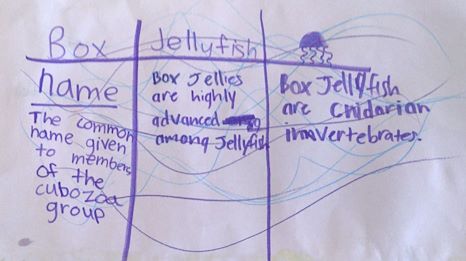 Box
name
The common
name given
to members
of the
cubozoa
group
Jellyfish
Box Jellies
are highly
advanced
among Jellyfish
Box Jellyfish
are cnidarian
invertebrates.